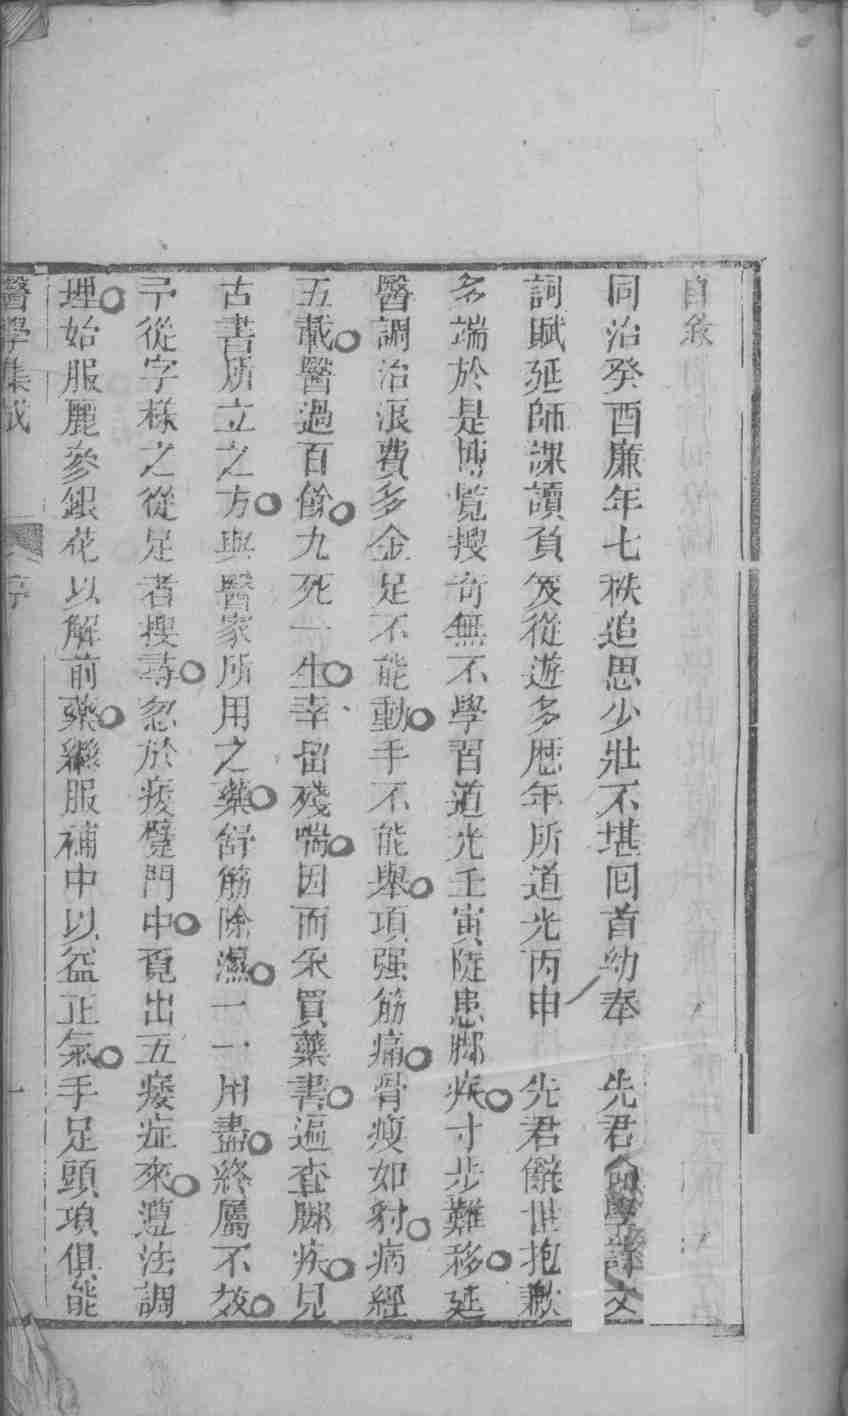 自叙
同治癸酉廉年七秩追思少壯不堪回首幼奉　先君命學詩文
詞賦延師課讀負笈從遊多歷年所道光丙申　先君辭世抱歉
多端於是博覽搜奇無不學習道光壬寅陡患脚疾寸步難移延
醫調治浪費多金足不能動手不能舉項强筋痛骨瘦如豺病經
五載醫過百餘九死一生幸留殘喘因而采買藥書遍查脚疾見
古書所立之方與醫家所用之藥舒筋除濕一一用盡終屬不效
予從字樣之從足者搜尋忽於痿躄門中覓出五痿症來遵法調
理始服麗參銀花以解前藥繼服補中以益正氣手足頭項俱能
醫學集成　序　一